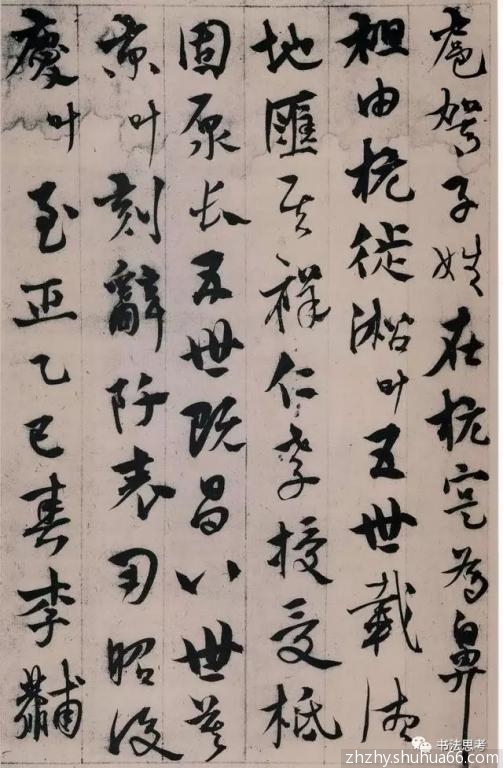 扈駕子姓在杭寔為鼻
祖由杭徙淞叶五世載德
地匯其祥仁孝授受柢
固原长五世既昌八世莫
京叶刻辭阡表用昭後
慶叶至正乙巳春李黼
书法思考
zhzhy.shuhua66.com